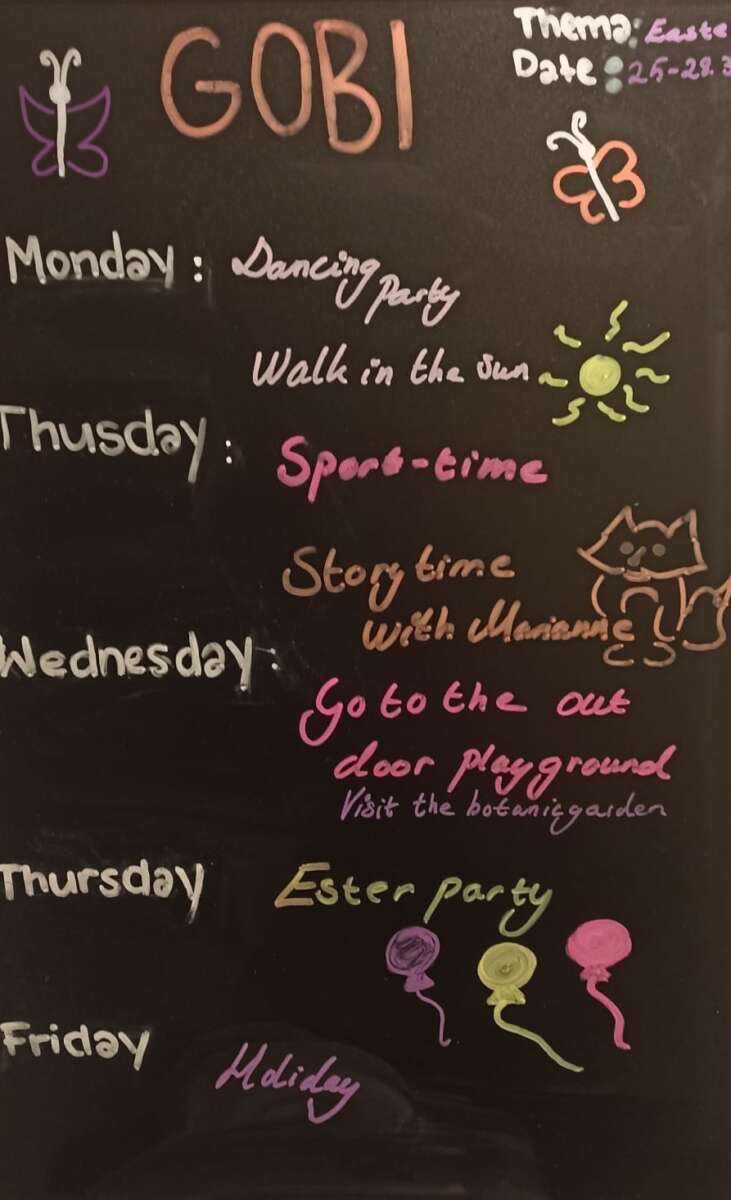 GOBI
Thema: Easte
Date: 25-28.3
Monday: Dancing Party
Walk in the sun
Thusday: Sport-time
Story time
with Marianne
Wednesday:
Go to the out
door playground
Visit the botanicgarden
Thursday Ester party
Friday Holiday